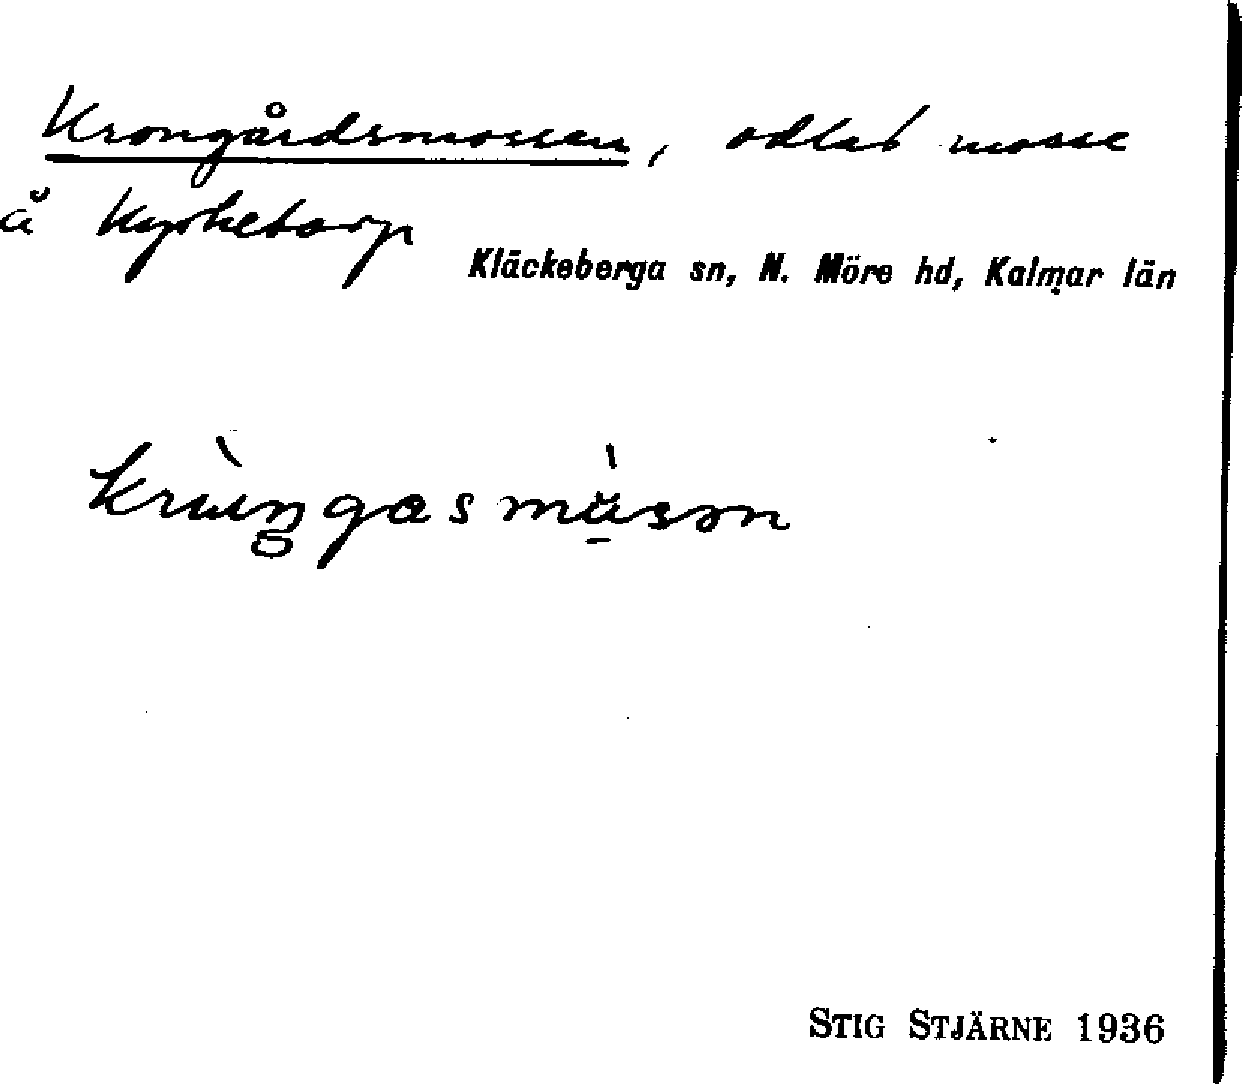 Krongårdsmossen, odlad mosse
å Kyrketorp
Kläckeberga sn, N. Möre hd, Kalmar län
STIG STJÄRNE 1936